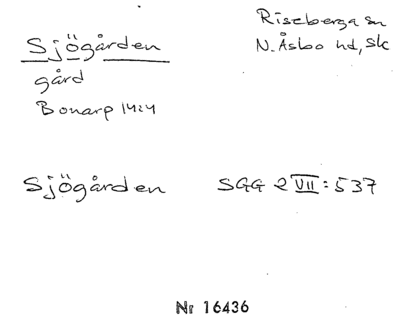 Sjögården
gård
Bonarp 1424
Riseberga sn
N. Åsbo hd, Sk
Sjögården SGG 2 VII: 537
Nr 16436